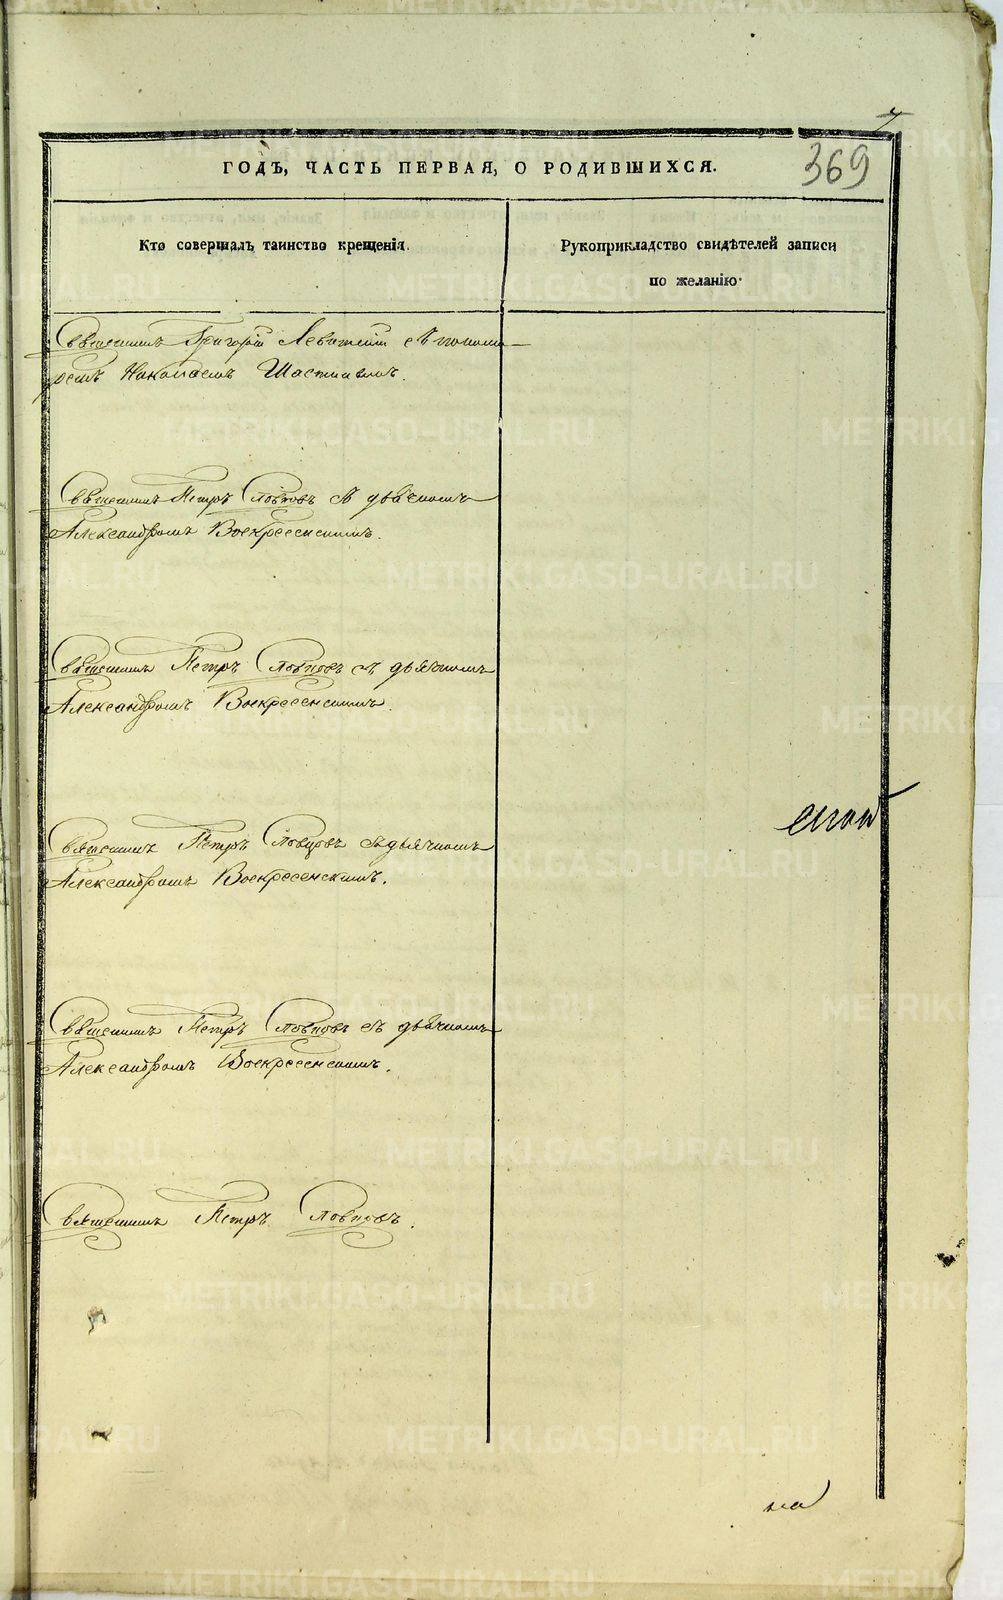 7
ГОДЪ, ЧАСТЬ ПЕРВАЯ, О РОДИВШИХСЯ.
369
Кто совершалъ таинство крещенія.
Рукоприкладство свидѣтелей записи
по желанію.
Священникъ Григорій Левитскій съ понома-
ремъ Николаемъ
Священникъ Петръ Словцовъ съ дьячкомъ
Александромъ Воскресенскимъ.
Священникъ Петръ Словцовъ съ дьячкомъ
Александромъ Воскресенскимъ.
Священникъ Петръ Словцовъ съ дьячкомъ
Александромъ Воскресенскимъ.
Священникъ Петръ Словцовъ съ дьячкомъ
Александромъ Воскресенскимъ.
Священникъ Петръ Словцовъ.
на
METRIKI.GASO-URAL.RU